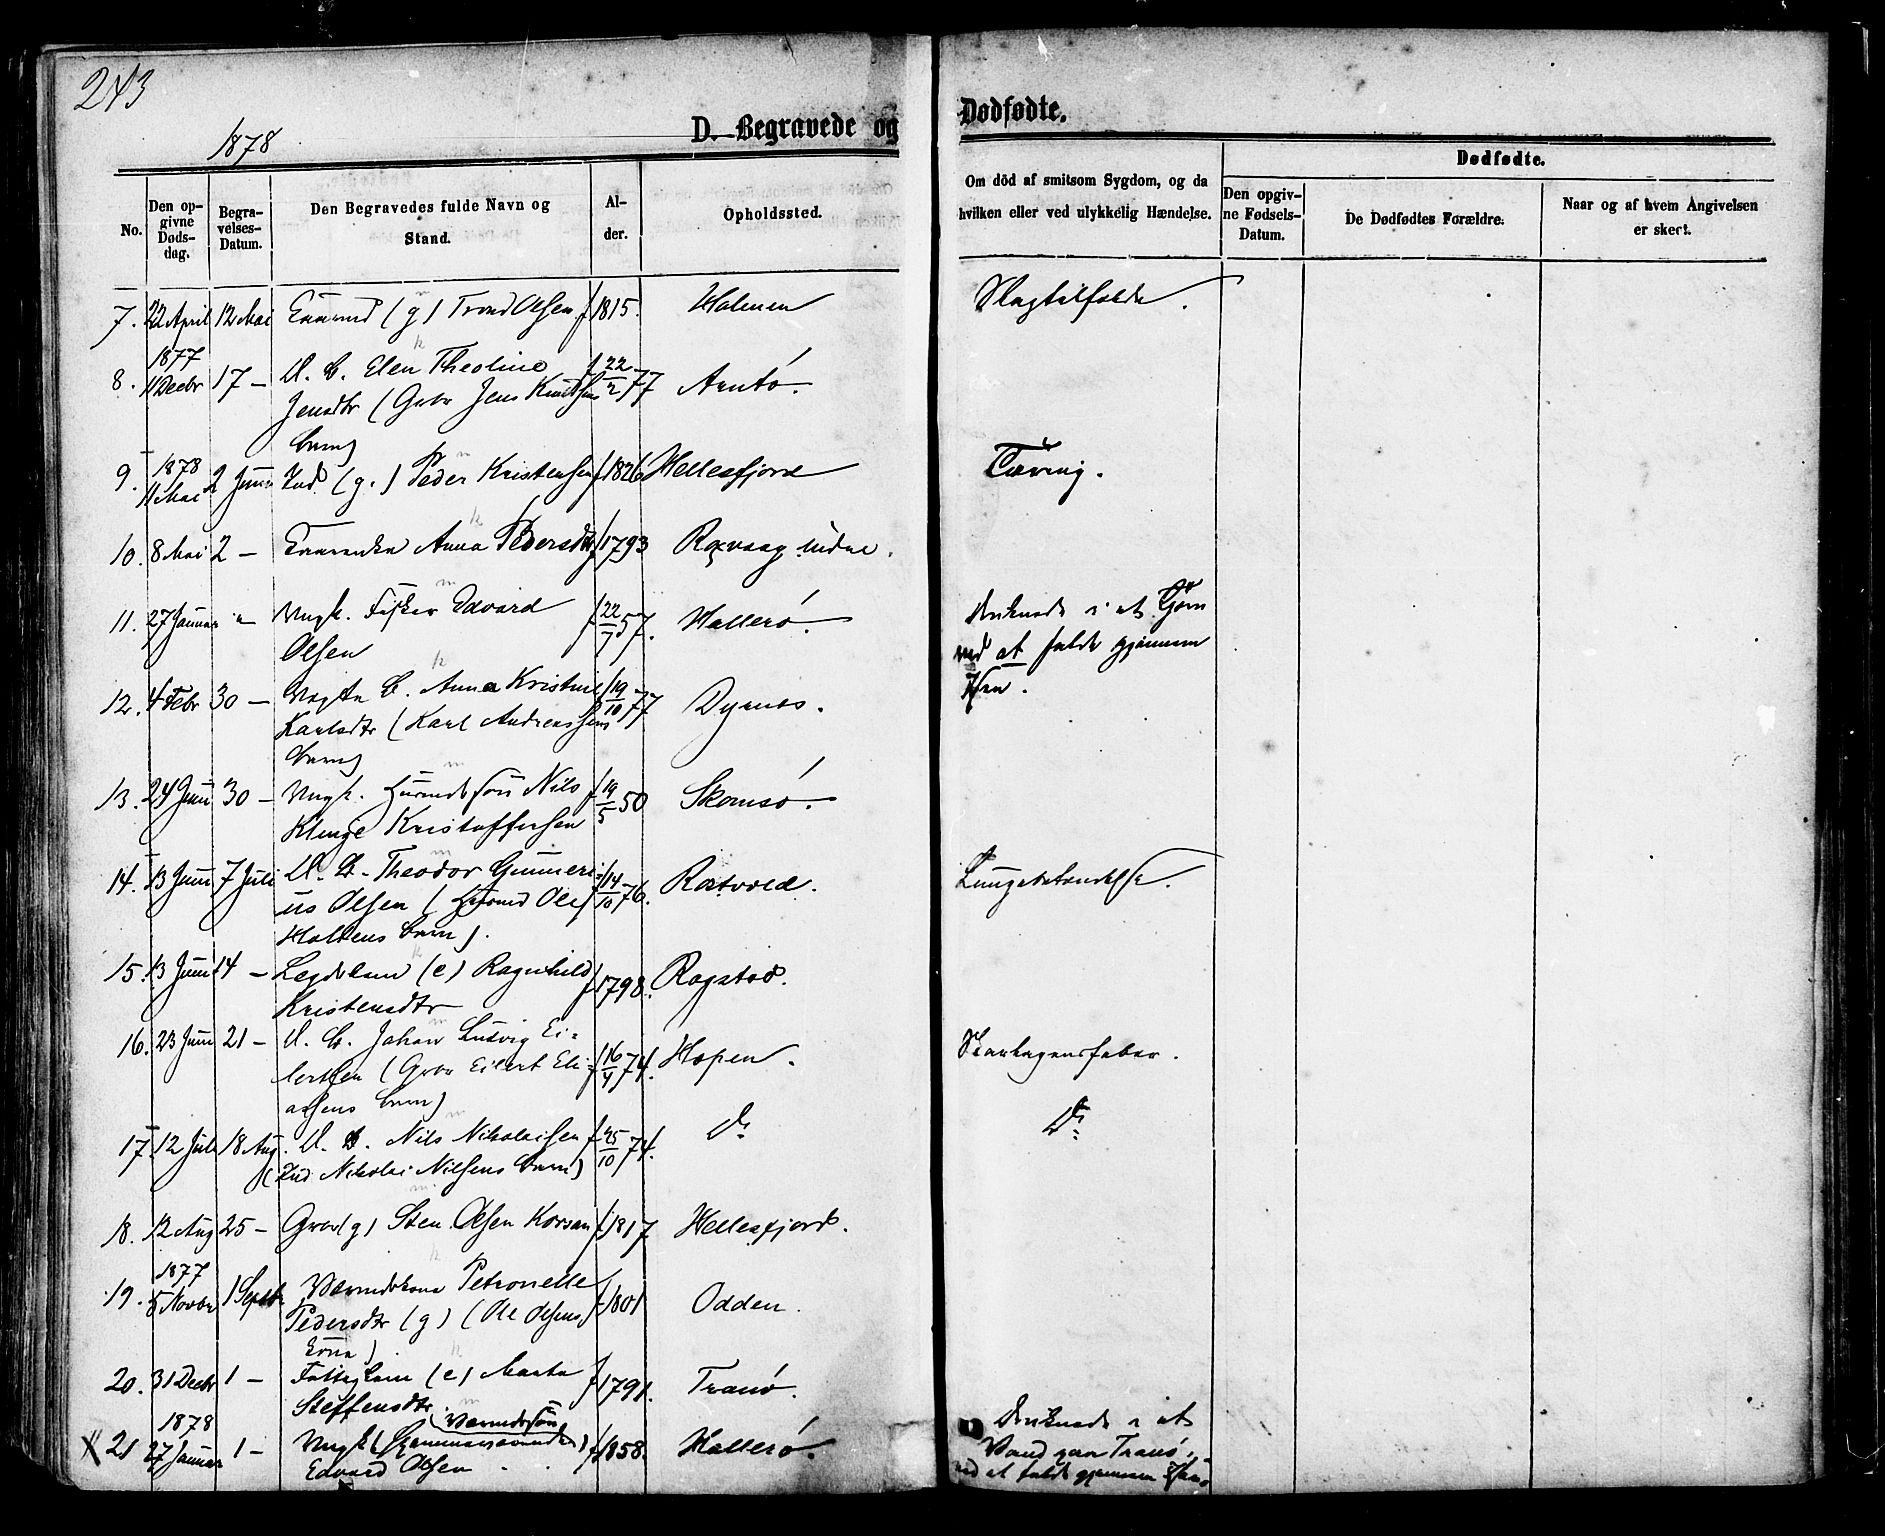 243
1878
D. Begravede og Dødfødte.
No.
Den opgivne Døds-dag.
Begravelses-Datum.
Den Begravedes fulde Navn og Stand.
Alder.
Opholdssted.
Om död af smitsom Sygdom, og da hvilken eller ved ulykkelig Hændelse.
Dødfødte.
Den opgivne Fødsels-Datum.
De Dødfødtes Forældre.
Naar og af hvem Angivelsen er skeet.
7. 22 April 12 Mai (g) Trond Olsen f 1815. Holmen Slagtilfælde.
1877
8. 11 Decbr 17 – U. B. Elen Theoline f 22/2 77 Arntö.
Jensdtr (Gbr Jens Knudsens
barn)
1878
9. 11 Mai 2 Juni Ind. (g.) Peder Kristensen f 1826 Hellesfjord Tæring.
10. 8 Mai 2 – Anna Pedersdtr f 1793 Roxvaag indre.
11. 27 Januar " – Ungk. Fisker Edvard f 22/7 57. Hallerö. druknede i et Tjern
Olsen ved at falde gjennem
Isen.
12. 4 Febr 30 – B. Anna Kristine f 19/10 77 Dyrnes.
Karlsdtr (Karl Andreassens
barn)
13. 24 Juni 30 – Ungk. Nils f 19/5 50 Skomsö.
Klinge Kristoffersen
14. 13 Juni 7 Juli U. B. Theodor Gunneri- f 14/10 76. Rostvold. Lungebetændelse.
us Olsen ( Ole
Holtens barn).
15. 13 Juni 14 – Legdslem (e) Ragnhild f 1798. Rogstad.
Kristensdtr
16. 23 Juni 21 – U. B. Johan Ludvig Ei- f 16/4 74. Hopen. Skarlagensfeber.
lertsen (Gbr Eilert Eli-
assens barn)
17. 12 Juli 18 Aug. U. B. Nils Nikolaisen f 25/10 74. Do Do
(Ind Nikolai Nilsens barn)
18. 12 Aug 25 – Gbr (g) Sten Olsen Korsan f 1817 Hellesfjord.
1877
19. 5 Novbr 1 Septbr Petronelle f 1801 Odden.
Pedersdtr (g) (Ole Olsens
kone)
20. 31 Decbr 1 – Fattiglem (e) Marta f 1791. Tranö.
Steffensdtr
1878
X 21 27 Januar 1 – Ungk ( ) f 1858. Hallerö. Druknede i et
Edvard Olsen Vand paa Tranö,
ved at falde gjennem Isen